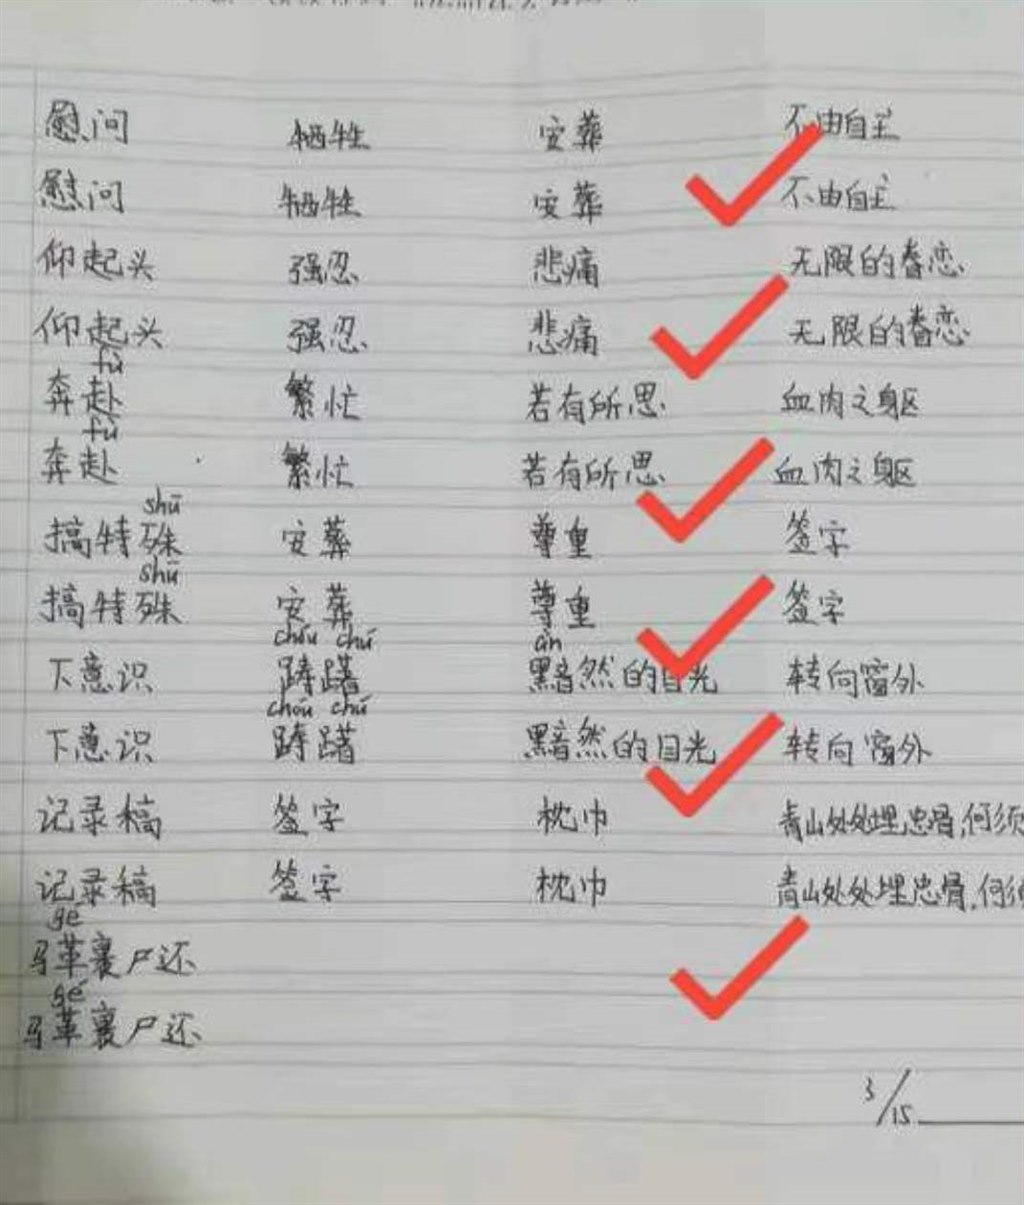 慰问 牺牲 安葬 不由自主
慰问 牺牲 安葬 不由自主
仰起头 强忍 悲痛 无限的眷恋
仰起头 强忍 悲痛 无限的眷恋
fù
奔赴 繁忙 若有所思 血肉之躯
fù
奔赴 繁忙 若有所思 血肉之躯
shū
搞特殊 安葬 尊重 签字
shū
搞特殊 安葬 尊重 签字
chóu chú àn
下意识 踌躇 黯然的目光 转向窗外
chóu chú
下意识 踌躇 黯然的目光 转向窗外
记录稿 签字 枕巾 青山处处埋忠骨,何须
记录稿 签字 枕巾 青山处处埋忠骨,何须
gé
马革裹尸还
gé
马革裹尸还
3/15